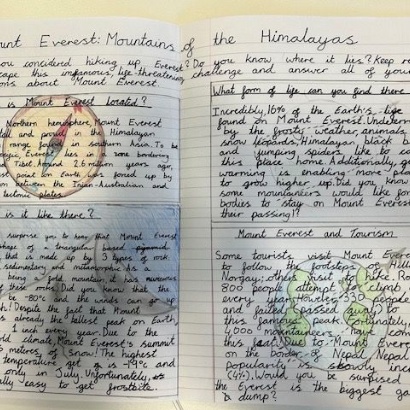 unt Everest: Mountains of the Himalayas
you considered hiking up Everest? Do you know where it lies? Keep re
cape this infamous, life-threatening challenge and answer all of your
ons about Mount Everest.
is Mount Everest located?
Northern hemisphere, Mount Everest
tall and proud in the Himalayan
range found in southern Asia. To be
Everest lies in zone bordering
Tibet. Around 2.6 million years ago,
point on Earth was forced up by
between the Indo-Australian and
tectonic plates.
is it like there?
surprise you to know that Mount Everest
shape of a triangular based pyramid
that is made up by 3 types of rock
sedimentary and metamorphic. As a
being a fold mountain, it has numerous
of these rocks. Did you know that the
be -80°c and the winds can go up
h? Despite the fact that Mount
is already the tallest peak on Earth,
1 inch every year. Due to the
cold climate, Mount Everest's summit
metres of snow! The highest
temperature get is -19°c and
only in July. Unfortunately,
really easy to get frostbite.
What form of life can you find there
Incredibly, 16% of the Earth's life
found on Mount Everest. Undeterr
by the frosty weather, animals
snow leopards, Himalayan black b
and jumping spiders like to ca
this place home. Additionally, g
warming is enabling more pla
to grow higher up. Did you know
some mountaineers would like for
bodies to stay on Mount Everest
their passing!?
Mount Everest and Tourism
Some tourists visit Mount Evere
to follow the footsteps
Norgay: the first
800 people attempt climb
every year. However, 330 people
and failed (passed away) to
this famous peak.
4,000 mountaineers
this last due to Mount Ever
on the border of Nepal, Nepal
popularity is slowly incre
(4%). Would you be surprised
the Everest is the biggest ga
dump?